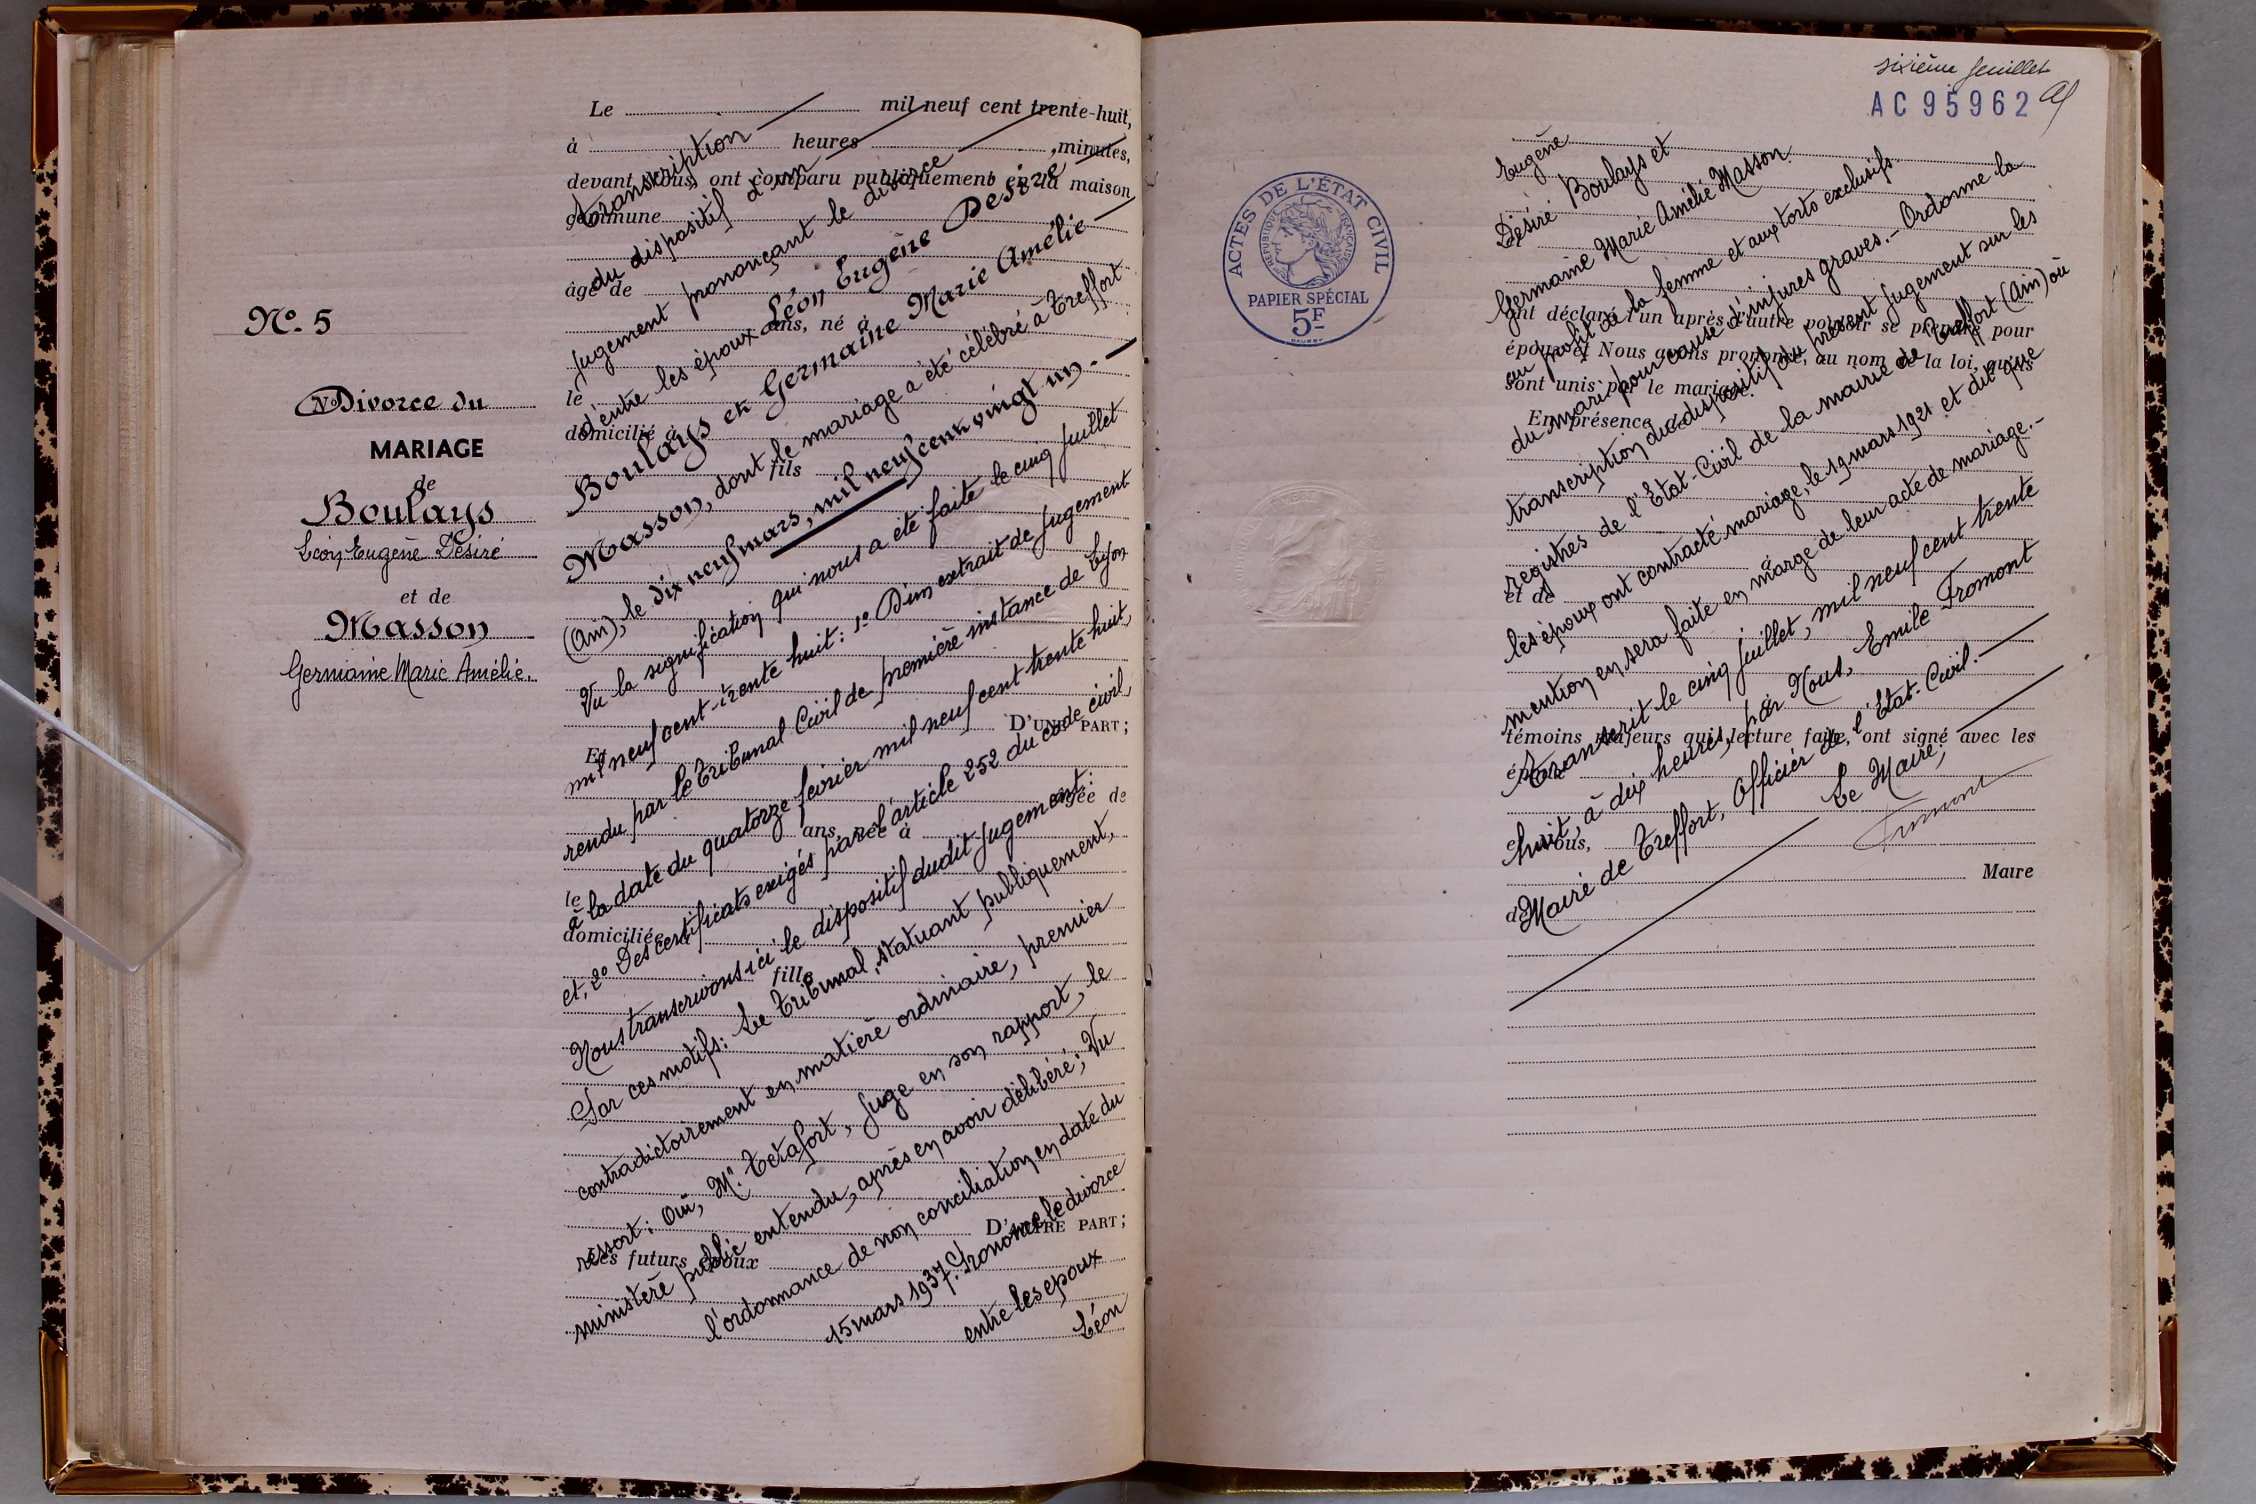 N° 5
N° Divorce du
MARIAGE
de
Boulays
Léon Eugène Désiré
et de
Masson
Germaine Marie Amélie.
Le mil neuf cent trente-huit,
à heures minutes,
devant Nous, ont comparu publiquement en la maison
commune
âgé de
ans, né à
le
domicilié à
fils
D'UNE PART ;
Et
âgée de
ans, née à
le
domiciliée à
fille
D'AUTRE PART ;
Les futurs époux
Transcription
du dispositif d'un
jugement prononçant le divorce
d'entre les époux Léon Eugène Désiré
Boulays et Germaine Marie Amélie
Masson, dont le mariage a été célébré à Treffort
(Ain), le dix neuf mars, mil neuf cent vingt un.-
Vu la signification qui nous a été faite le cinq juillet
mil neuf cent-trente huit : 1° D'un extrait de jugement
rendu par le Tribunal Civil de première instance de Lyon
à la date du quatorze février mil neuf cent trente huit,
et, 2° Des certificats exigés par l'article 252 du code civil,
Nous transcrivons ici le dispositif dudit jugement :
Par ces motifs : Le Tribunal, statuant publiquement,
contradictoirement en matière ordinaire, premier
ressort : Ouï, Mr. Tetafort, juge en son rapport, le
ministère public entendu, après en avoir délibéré ; Vu
l'ordonnance de non conciliation en date du
15 mars 1937. Prononce le divorce
entre les époux
Léon
sixième feuillet
AC 95962
ACTES DE L'ÉTAT CIVIL
REPUBLIQUE FRANÇAISE
PAPIER SPÉCIAL
5F
ont déclaré l'un après l'autre vouloir se prendre pour
époux et Nous avons prononcé, au nom de la loi, qu'ils
sont unis par le mariage.
En présence de
et de à
témoins majeurs qui, lecture faite, ont signé avec les
époux
et Nous,
Maire
de
Eugène
Désiré Boulays et
Germaine Marie Amélie Masson
au profit de la femme et aux torts exclusifs
du mari pour cause d'injures graves.- Ordonne la
transcription du dispositif du présent jugement sur les
registres de l'Etat-Civil de la mairie de Treffort (Ain) où
les époux ont contracté mariage, le 19 mars 1921 et dit que
mention en sera faite en marge de leur acte de mariage.-
Transcrit le cinq juillet, mil neuf cent trente
huit, à dix heures, par Nous, Emile Fromont
Maire de Treffort, Officier de l'Etat-Civil.-
Le Maire,
Fromont